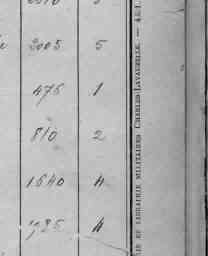 2005 5
476 1
810 2
1640 4
4
IE ET LIBRAIRIE MILITAIRES CHARLES-LAVAUZELLE. —